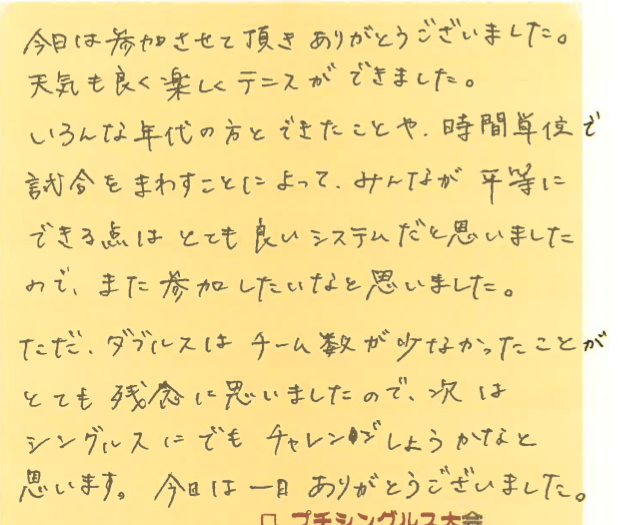 今日は参加させて頂きありがとうございました。
天気も良く楽しくテニスができました。
いろんな年代の方とできたことや、時間単位で
試合をまわすことによって、みんなが平等に
できる点はとても良いシステムだと思いました
ので、また参加したいなと思いました。
ただ、ダブルスはチーム数が少なかったことが
とても残念に思いましたので、次は
シングルスにでもチャレンジしようかなと
思います。今日は一日ありがとうございました。
プチシングルス大会